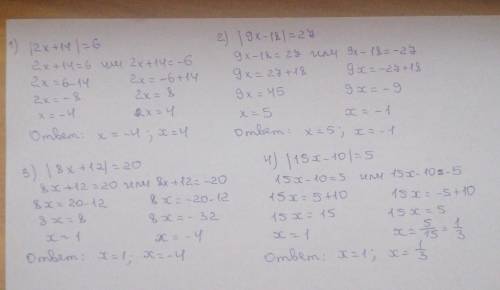 1) |2x+14|=6
2x+14=6 или 2x+14=-6
2x=6-14 2x=-6+14
2x=-8 2x=8
x=-4 2x=4
Ответ: x=-4; x=4
2) |9x-18|=27
9x-18=27 или 9x-18=-27
9x=27+18 9x=-27+18
9x=45 9x=-9
x=5 x=-1
Ответ: x=5; x=-1
3) |8x+12|=20
8x+12=20 или 8x+12=-20
8x=20-12 8x=-20-12
8x=8 8x=-32
x=1 x=-4
Ответ: x=1; x=-4
4) |15x-10|=5
15x-10=5 или 15x-10=-5
15x=5+10 15x=-5+10
15x=15 15x=5
x=1 x=5/15=1/3
Ответ: x=1; x=1/3